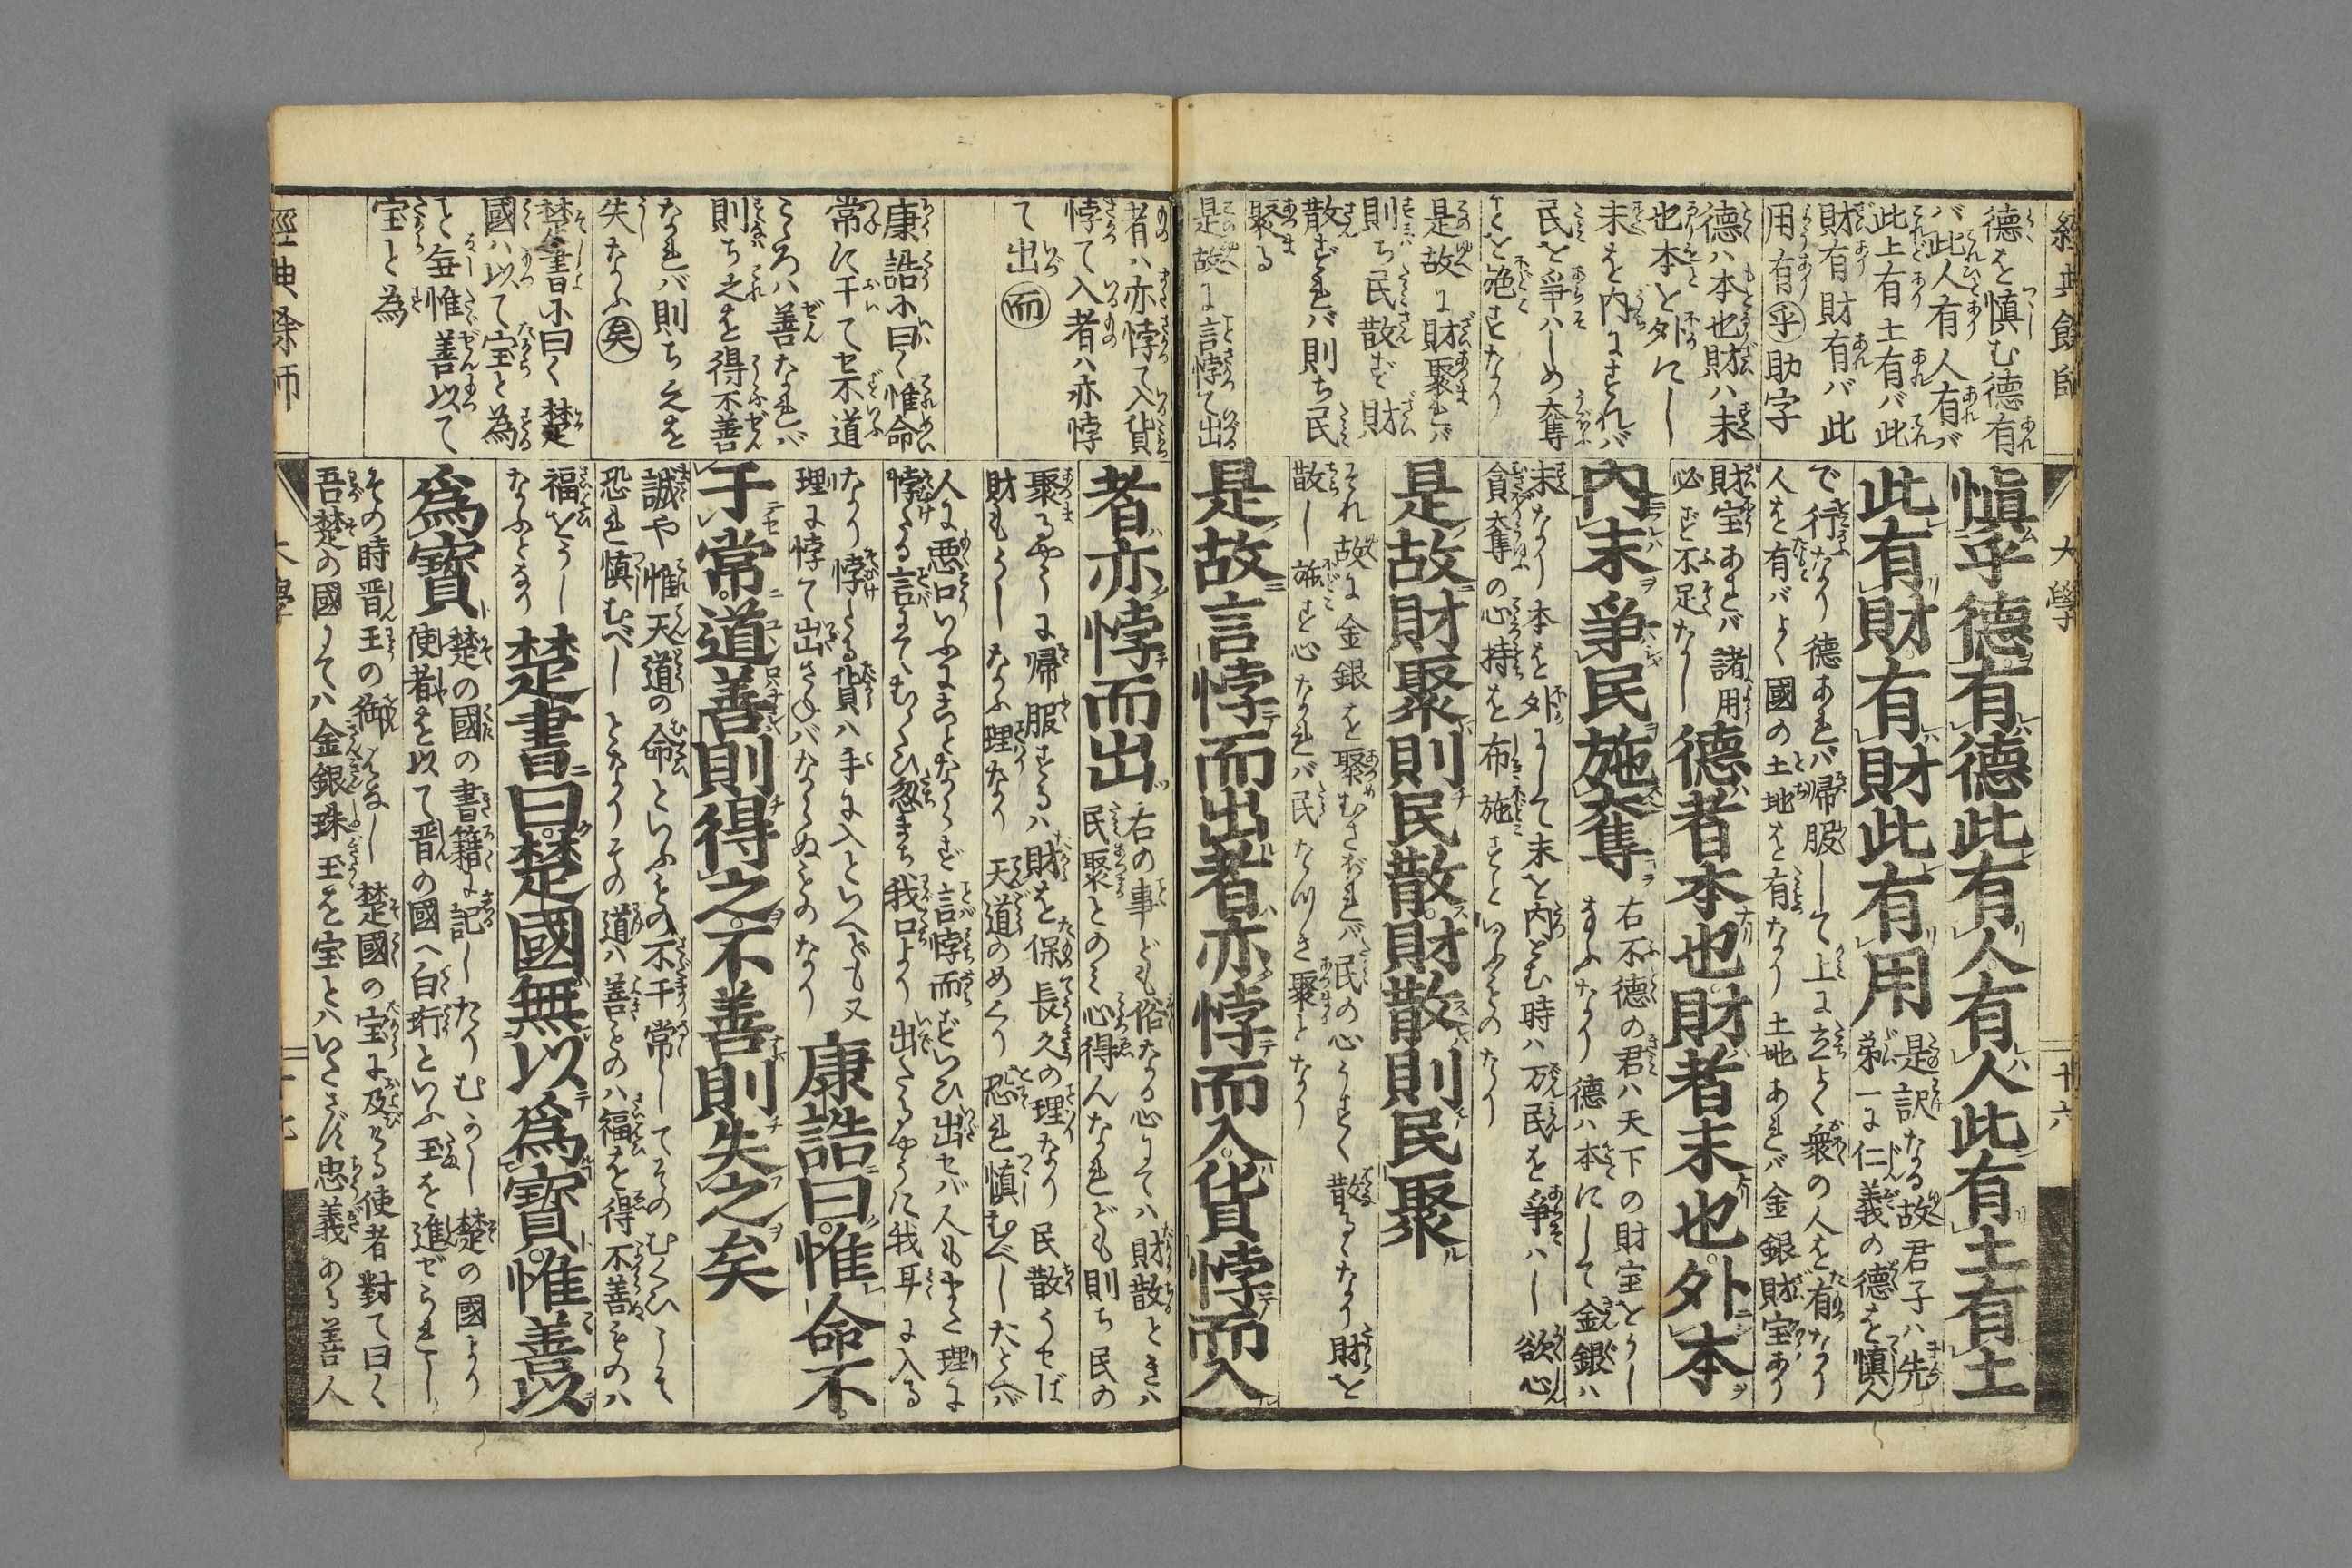 經典餘師
大學
十六
德を慎む德有
バ此人有人有バ
此土有土有バ此
財有財有バ此
用有乎助字
德ハ本也財ハ末
也本を外にし
末を内にすれバ
民を爭ハしめ奪
ことを施すなり
是故に財聚れバ
則ち民散ず財
散ずれバ則ち民
聚る
是故に言悖て出
愼乎德有德此有人有人此有土有土
此有財有財此有用
是訳なる故君子ハ先
第一に仁義の德を慎ん
で行ふなり德あれバ帰服して上に立よく衆の人を有なり
人を有バよく國の土地を有なり土地あれバ金銀財宝あり
財宝あれバ諸用
必ず不足なし
德者本也財者末也外本
内末爭民施奪
右不德の君ハ天下の財宝をうし
なふなり德ハ本にして金銀ハ
末なり本を外にして末を内とむ時ハ万民を爭ハし欲心
貪奪の心持を布施すといふものなり
是故財聚則民散財散則民聚
それ故に金銀を聚むさぼれバ民の心うすく散るなり財を
散し施す心なれバ民なつき聚となり
是故言悖而出者亦悖而入貨悖而入
者ハ亦悖て入貨
悖て入者ハ亦悖
て出而
康誥に曰く惟命
常に于てせ不道
こゝろハ善なれバ
則ち之を得不善
なれバ則ち之を
失なふ矣
楚書に曰く楚
國ハ以て宝と為
と毎惟善以て
宝と為
者亦悖而出
右の事ども俗なる心にてハ財散ときハ
民聚とのミ心得んなれども則ち民の
聚るやうに帰服するハ財を保長久の理なり民散うせば
財もうしなふ理なり天道のめぐり恐れ慎むべしたとへバ
人に悪口いふにことならず言悖而ずいひ出せバ人もまた理に
悖ける言にて、むくひ忽まち我口より出たるやうに我耳に入る
なり悖ける貨ハ手に入といへども又
理に悖て出さねバならぬものなり
康誥曰惟命不
于常道善則得之不善則失之矣
誠や惟天道の命といふもの不于常してそのむくひこそ
恐れ慎むべしとなりその道ハ善ものハ福を得不善ものハ
福をうし
なふとなり
楚書曰楚國無以爲寶惟善以
爲寶
楚の國の書籍に記したりむかし楚の國より
使者を以て晋の國へ白珩といふ玉を進ぜられし
その時晋王の御はなし楚國の宝に及ける使者對て曰く
吾楚の國にてハ金銀珠玉を宝とハいたさず忠義ある善人
經典餘師
大學
十七